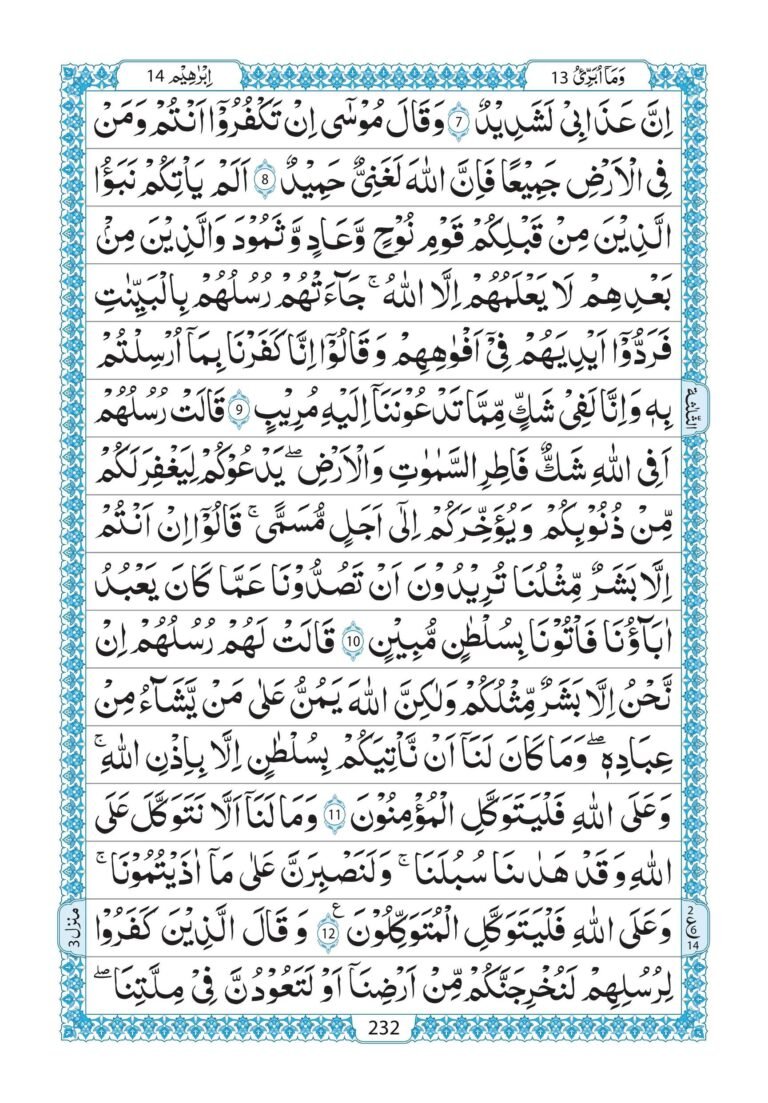 وَمَآ اُبَرِّئُ 13
اِبْرٰهِيْم 14
اِنَّ عَذَابِىْ لَشَدِيْدٌ 7 وَقَالَ مُوْسٰٓى اِنْ تَكْفُرُوْۤا اَنْتُمْ وَمَنْ
فِى الْاَرْضِ جَمِيْعًا فَاِنَّ اللّٰهَ لَغَنِىٌّ حَمِيْدٌ 8 اَلَمْ يَاْتِكُمْ نَبَؤُا
الَّذِيْنَ مِنْ قَبْلِكُمْ قَوْمِ نُوْحٍ وَّعَادٍ وَّ ثَمُوْدَ وَالَّذِيْنَ مِنْۢ
بَعْدِهِمْ لَا يَعْلَمُهُمْ اِلَّا اللّٰهُ ۚ جَآءَتْهُمْ رُسُلُهُمْ بِالْبَيِّنٰتِ
فَرَدُّوْۤا اَيْدِيَهُمْ فِىْۤ اَفْوَاهِهِمْ وَ قَالُوْۤا اِنَّا كَفَرْنَا بِمَاۤ اُرْسِلْتُمْ
بِهٖ وَاِنَّا لَفِىْ شَكٍّ مِّمَّا تَدْعُوْنَنَاۤ اِلَيْهِ مُرِيْبٍ 9 قَالَتْ رُسُلُهُمْ
اَفِى اللّٰهِ شَكٌّ فَاطِرِ السَّمٰوٰتِ وَالْاَرْضِ ۖ يَدْعُوْكُمْ لِيَغْفِرَ لَكُمْ
مِّنْ ذُنُوْبِكُمْ وَيُؤَخِّرَكُمْ اِلٰٓى اَجَلٍ مُّسَمًّى ۚ قَالُوْۤا اِنْ اَنْتُمْ
اِلَّا بَشَرٌ مِّثْلُنَا تُرِيْدُوْنَ اَنْ تَصُدُّوْنَا عَمَّا كَانَ يَعْبُدُ
اٰبَآؤُنَا فَاْتُوْنَا بِسُلْطٰنٍ مُّبِيْنٍ 10 قَالَتْ لَهُمْ رُسُلُهُمْ اِنْ
نَّحْنُ اِلَّا بَشَرٌ مِّثْلُكُمْ وَلٰكِنَّ اللّٰهَ يَمُنُّ عَلٰى مَنْ يَّشَآءُ مِنْ
عِبَادِهٖ ۖ وَمَا كَانَ لَنَاۤ اَنْ نَّاْتِيَكُمْ بِسُلْطٰنٍ اِلَّا بِاِذْنِ اللّٰهِ ۚ
وَعَلَى اللّٰهِ فَلْيَتَوَكَّلِ الْمُؤْمِنُوْنَ 11 وَمَا لَنَاۤ اَلَّا نَتَوَكَّلَ عَلَى
اللّٰهِ وَ قَدْ هَدٰٮنَا سُبُلَنَا ۚ وَلَنَصْبِرَنَّ عَلٰى مَاۤ اٰذَيْتُمُوْنَا ۚ
وَعَلَى اللّٰهِ فَلْيَتَوَكَّلِ الْمُتَوَكِّلُوْنَ 12 ع وَ قَالَ الَّذِيْنَ كَفَرُوْا
لِرُسُلِهِمْ لَنُخْرِجَنَّكُمْ مِّنْ اَرْضِنَاۤ اَوْ لَتَعُوْدُنَّ فِىْ مِلَّتِنَا ۖ
الثّلٰثة
2
ع 6
14
منزل 3
232